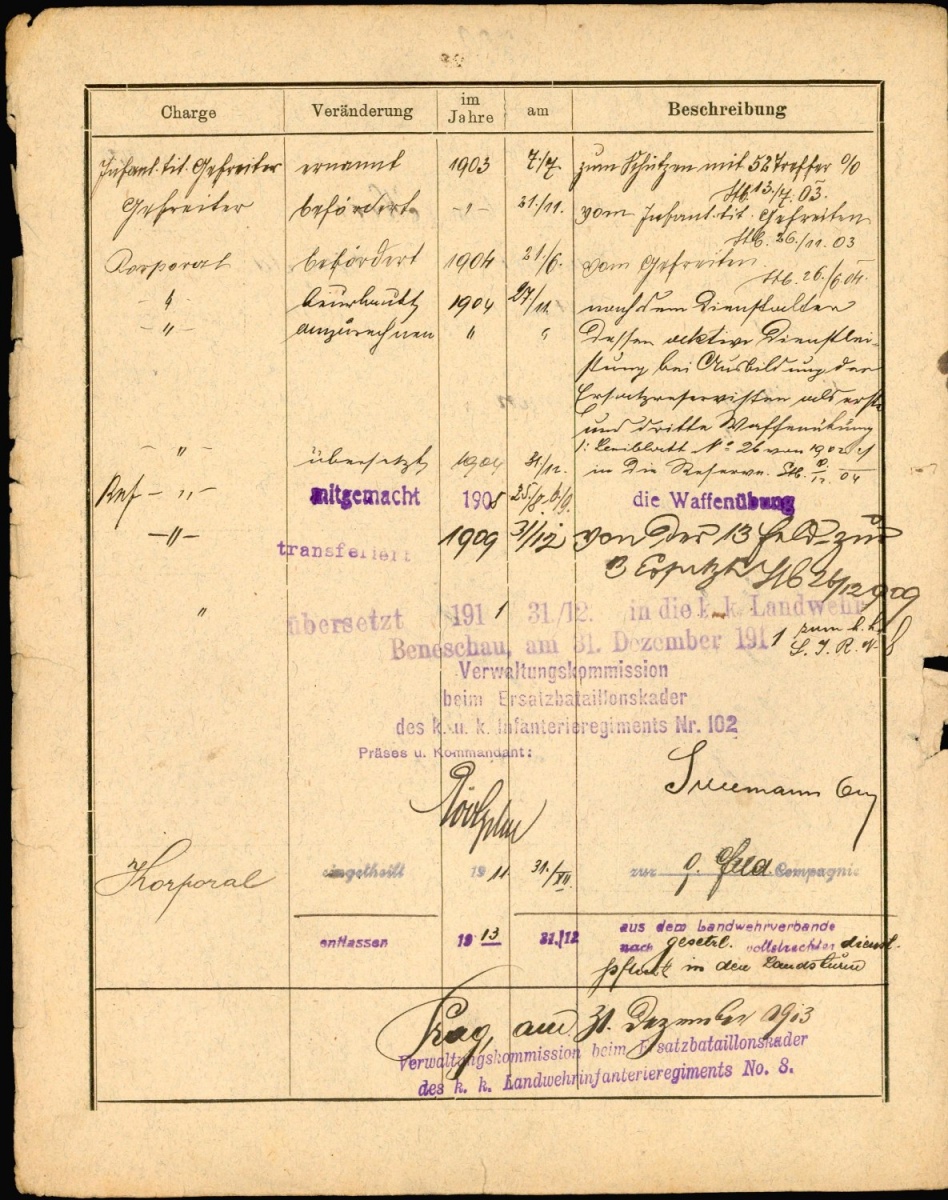 Charge Veränderung im Jahre am Beschreibung
Infant. tit. Gefreiter ernannt 1903 7./7. zum Schützen mit 52 Treffer %
Stb. 13./7. 03.
Gefreiter befördert -"- 21./11. vom Infant. tit. Gefreiten
Stb. 26./11. 03
Korporal befördert 1904 21./6. vom Gefreiten
Stb. 26./6 04.
-"- beurlaubt 1904 27/11. nach dem Dienstalter
-"- anzurechnen " " dessen aktive Dienstlei-
stung bei Ausbildung der
Ersatzreservisten als erste
und dritte Waffenübung
No 26 von 1902
-"- übersetzt 1904 31/12. in die Reserve. Stb. 04
Ref -"- mitgemacht 1908 25/8. 6/9. die Waffenübung
-"- transferiert 1909 31/12 von der 13 Feld- zur
3 Ersatzk Stb 26/12 909
" übersetzt 1911 31./12. in die k. k. Landwehr
Beneschau, am 31. Dezember 1911 zum k. k.
L. I. R. N. 8
Verwaltungskommission
beim Ersatzbataillonskader
des k. u. k. Infanterieregiments Nr. 102
Präses u. Kommandant:
Korporal eingetheilt 1911 31./XII. zur 9. Feld Compagnie
entlassen 1913 31./12 aus dem Landwehrverbande
nach gesetzl. vollstreckter dienst-
pflicht in den Landsturm
Prag, am 31. Dezember 1913
Verwaltungskommission beim Ersatzbataillonskader
des k. k. Landwehrinfanterieregiments No. 8.